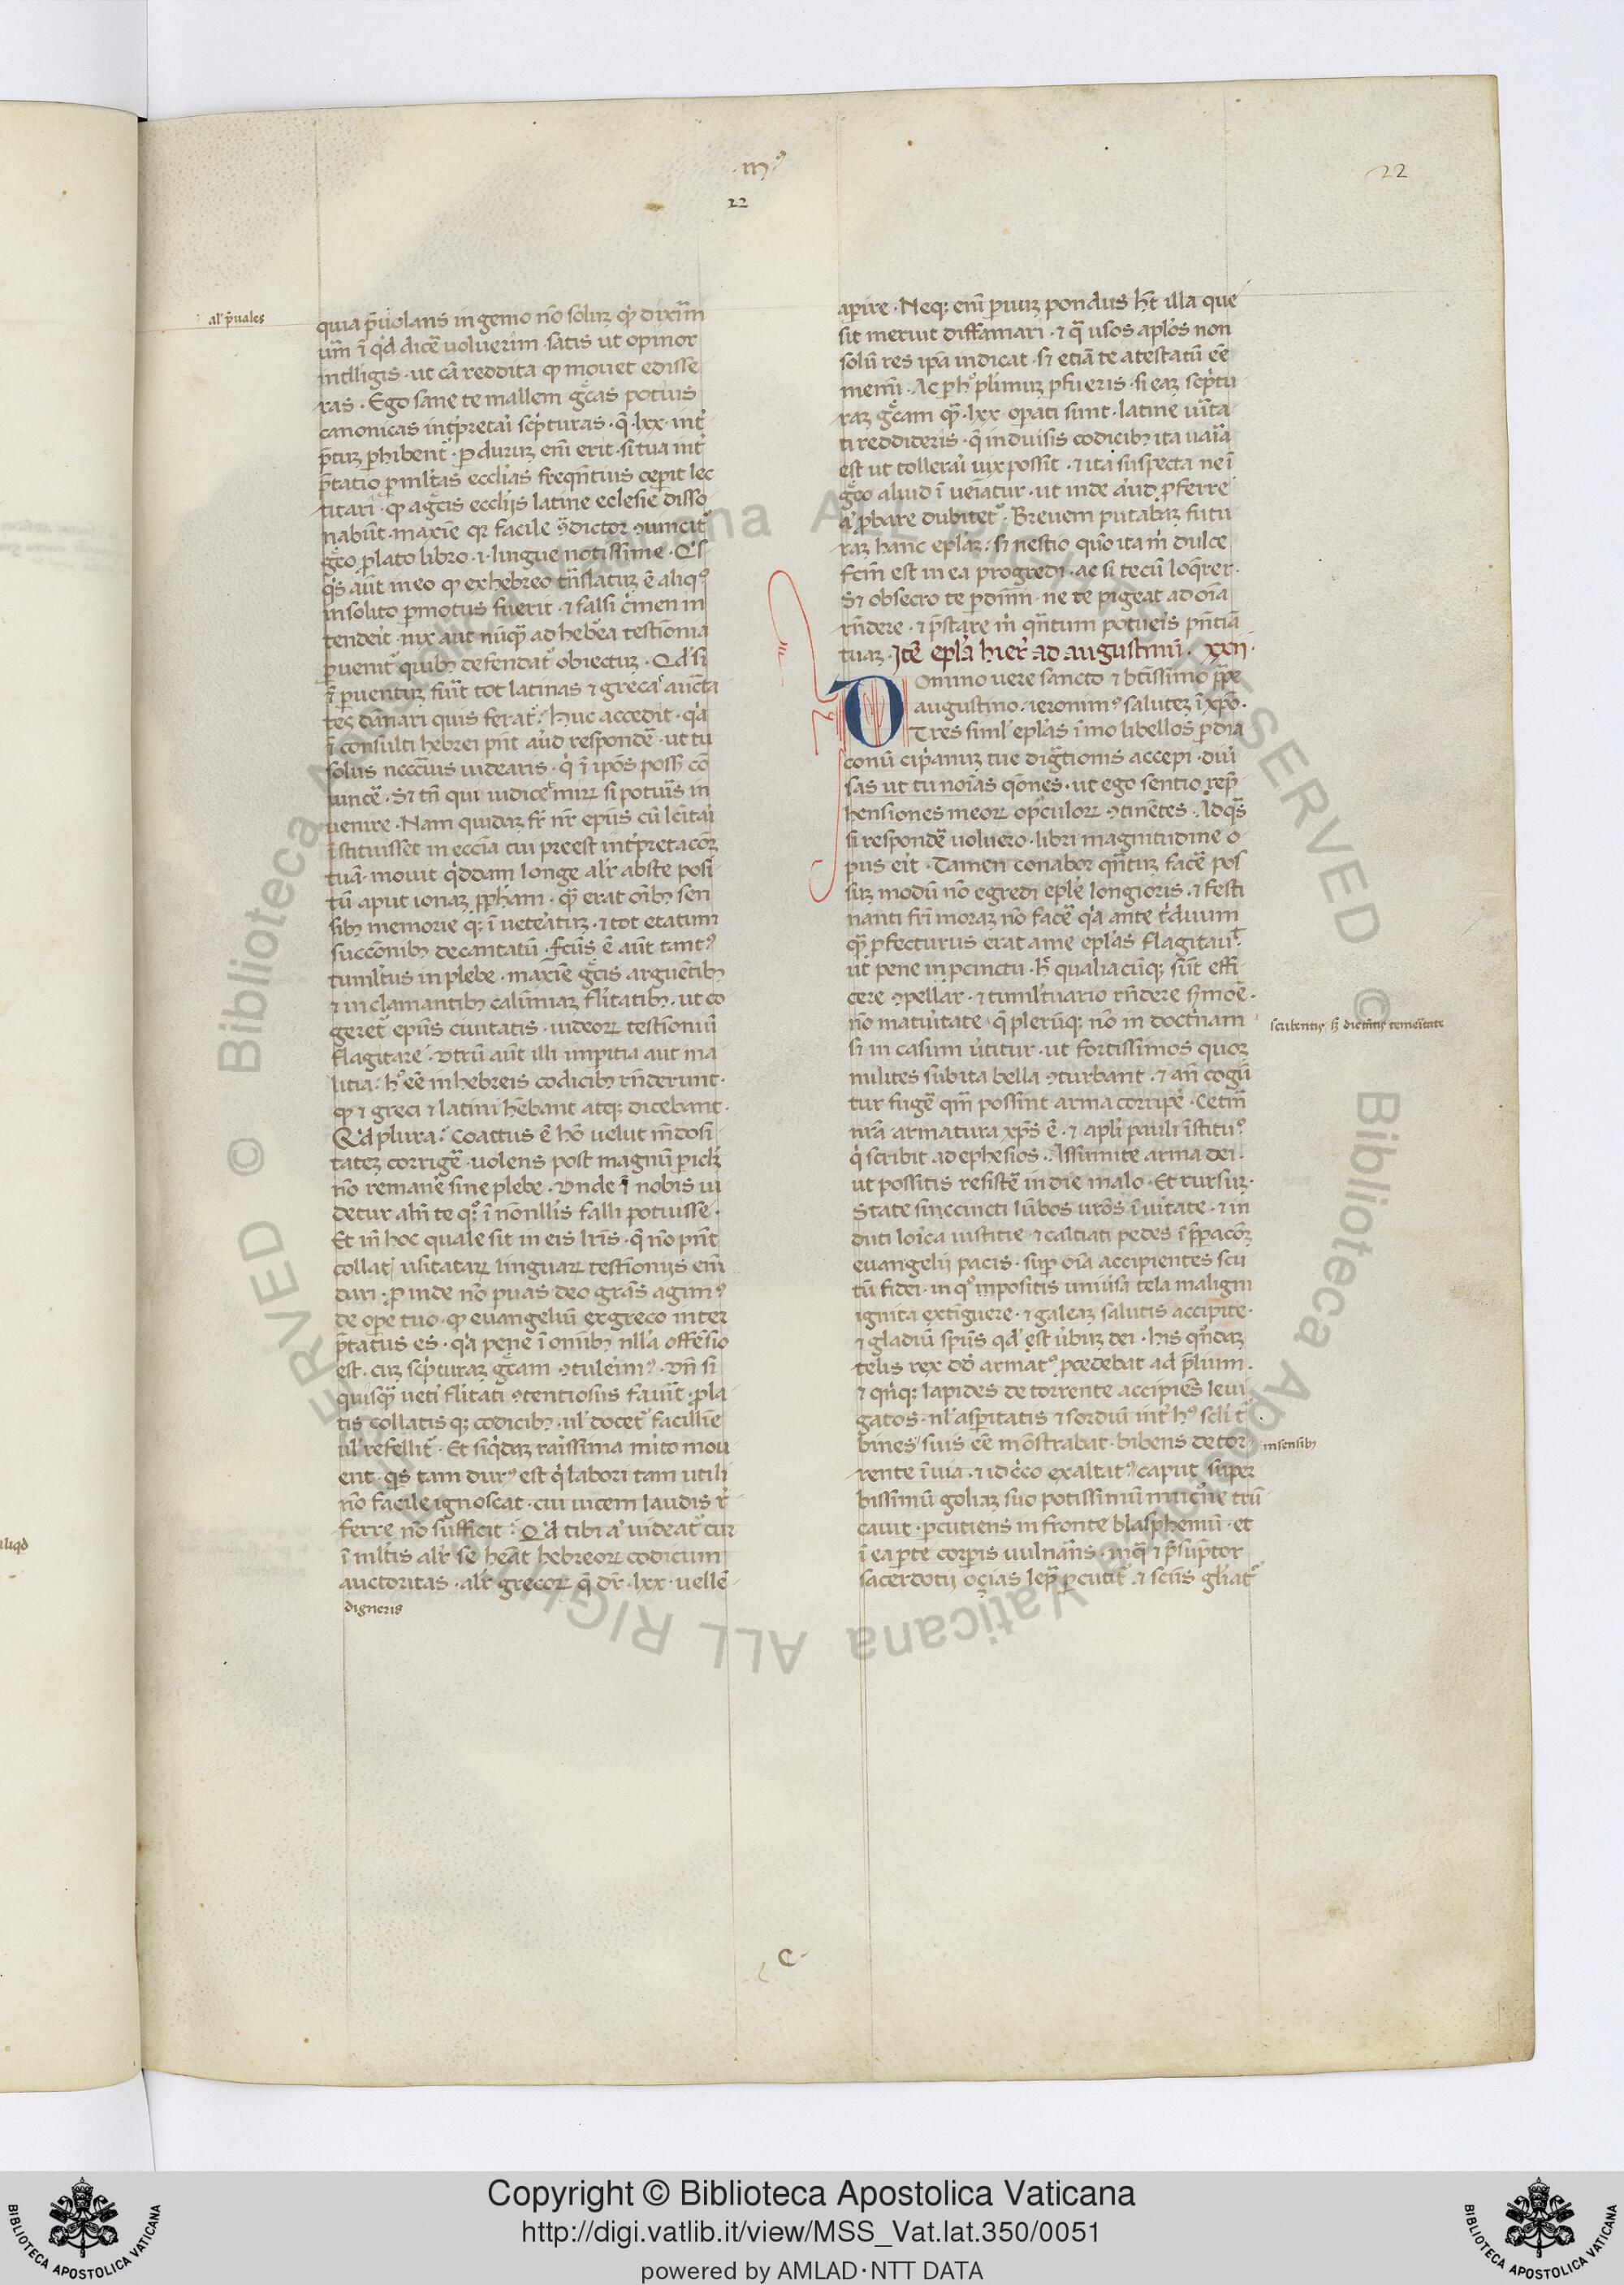 .III9
22
22
al' p̄uales
quia p̄uolans ingenio nō solũ qđ dixim̃
um̃ ĩ qđ dicẽ uoluerim satis ut opinor
intelligis · ut cã reddita qđ mouet edisse
ras · Ego sane te mallem gc̃as potius
canonicas int̃pretari sc̃pturas · q̃ · lxx · int̃
p̄tum perhibent᷑ · perdurum enĩ erit · si tua int̃
p̄tatio per ml̃tas eccl̃ias freqñtius ceperit lec
titari · qđ a gc̃is eccl̃ijs latine eclesie disso
nabũt · maxie qr facile ꝯdictor ꝯuincit᷑
gc̃o prolato libro · i · lingue notissime · Qs
qs aũt in eo qđ ex hebreo trñslatum ẽ aliq9
insolito permotus fuerit · ⁊ falsi c̃men in
tenderit · uix aut nũq̃ ad hebrea testĩonia
peruenit᷑ quib9 defendat᷑ obiectum · Qđ si
⁊ peruentum fuit tot latinas ⁊ grecas auc̃ta
tes dãnari quis ferat᷑ · Huc accedit · qa
⁊ consulti hebrei pñt aliud respondẽ · ut tu
solus necc̃ius uidearis · q ⁊ ip̃os possis cõ
uincẽ · S; tñ quo iudice mirꝝ si potueris in
uenire · Nam quidam fr̃ nr̃ ep̃us cũ lc̃itari
ĩstituisset in ecc̃ia cui preest int̃pretacõem
tuã · mouit qddam longe alr̃ abste posi
tũ aput ionam p̃pham · q̃ erat oĩb9 sen
sib9 memorie q; ĩueteratum · ⁊ tot etatum
succonib9 decantatũ · Fc̃us ẽ aũt tant9
tumultus in plebe · maxĩe gc̃is arguẽtib9
⁊ inclamantib9 calũniam fl̃itatib9 · ut co
geret᷑ ep̃us ciuitatis · iudeorꝝ testĩoniũ
flagitare · Vtrũ aũt illi imperitia aut ma
litia · h9 eẽ in hebreis codicib9 rñderunt ·
qđ ⁊ greci ⁊ latini hẽbant atq; dicebant ·
Qđ plura · Coactus ẽ hõ uelut mẽdosi
tatem corrigẽ · uolens post magnũ pericl̃m
nõ remanẽ sine plebe · Vnde ⁊ nobis ui
detur al'r te q; ĩ nonnll̃is falli potuisse ·
Et in hoc quale sit in eis lr̃is · q̃ nõ pñt
collatis usitatarꝝ linguarꝝ testĩonijs emẽ
dari · Proinde nõ paruas deo grãs agim9
de opere tuo · qđ euangeliũ ex greco inter
p̄tatus es · qa pene ĩ omĩb9 nll̃a offẽsio
est · cum sc̃pturam gc̃am ꝯtulerim9 · Vñ si
quisq̃ ueteri fl̃itati ꝯtentiosius fauẽt · prola
tis collatis q; codicib9 · ul' docet᷑ facillĩe
ul' refellit᷑ · Et si qdam rarissima m̃ito mou
ent · qs tam dur9 est q labori tam utili
nõ facile ignoscat · cui uicem laudis re
ferre nõ sufficit · Qđ tibi aũ uideat᷑ cur
ĩ ml̃tis al'r se heãt hebreorꝝ codicum
auctoritas · al'r grecorꝝ q̃ dr̃ · lxx · uellẽ
digneris
aperire · Neq; enĩ paruum pondus ht̃ illa que
sic meruit diffamari · ⁊ q̃ usos ap̃los non
solũ res ip̃a indicat · s; etiã te atestatũ eẽ
memini · Ac per h9 plurimum profueris · si eam sc̃ptu
ram gc̃am q̃ · lxx · operati sunt · latine uẽrita
ti reddideris · q̃ in diuersis codicib9 ita uaria
est ut tollerari uix possit · ⁊ ita suspecta ne ĩ
gc̃o aliud ĩ ueniatur · ut inde aliud proferre
aũ probare dubitet᷑ · Breuem putabam futu
ram hanc ep̃lam · s; nescio quõ ita m̃ dulce
fc̃m est in ea progredi · ac si tecũ loq̃rer ·
S; obsecro te per dñm · ne te pigeat ad oĩa
rñdere · ⁊ p̄stare m̃ qñtum potueris pñtiã
tuam · Itẽ epl̃a hier̃ ad augustinũ · XXII ·
Domino uere sancto ⁊ btĩssimo p̃pe
augustino · ieronim9 salutem ĩ xp̃o ·
Tres siml̃ epl̃as ĩmo libellos per dia
conũ ciprianum tue dignationis accepi · diũ
sas ut tu noĩas qõnes · ut ego sentio rep̄
hensiones meorꝝ opusculorꝝ ꝯtinẽtes · Ad q̃s
si respondẽ uoluero · libri magnitudine o
pus erit · Tamen conabor qñtum facẽ pos
sum modũ nõ egredi epl̃e longioris · ⁊ festi
nanti fr̃i moram nõ facẽ · qa ante triduum
q̃ profecturus erat a me epl̃as flagitauit ·
ut pene in procinctu · h̃ qualiacũq; sũt effi
cere ꝯpellar · ⁊ tumultuario rñdere s̃monẽ ·
nõ maturitate · q̃ plerũq; nõ in doctrinam
si in casum ũtitur · ut fortissimos quoq;
milites subita bella ꝯturbant · ⁊ añ cogũ
tur fugẽ qm̃ possint arma corripẽ · Cetm̃
nr̃a armatura xp̃s ẽ · ⁊ apl̃i pauli ĩstitu9
q scribit ad ephesios · Assumite arma dei ·
ut possitis resistẽ in die malo · Et rursum ·
State succincti lũbos ur̃os ĩ uẽritate · ⁊ in
duti lorica iustitie · ⁊ calciati pedes ĩ p̃paracõem
euangelii pacis · super oĩa accipientes scu
tũ fidei · in q9 inpositis uniũsa tela maligni
ignita extĩguere · ⁊ galeam salutis accipite ·
⁊ gladiũ sp̃us qđ est ũbum dei · his qñdam
telis rex dd̃ armat9 procedebat ad p̄lium ·
⁊ qnq; lapides de torrente accipiẽs leui
gatos · nl̃ asperitatis ⁊ sordiũ int̃ h9 scl̃i t᷑
bines suis eẽ mõstrabat · bibens de tor
rente ĩ uia · ⁊ idc̃co exaltat9 caput super
bissimũ goliam suo potissimũ mucrone trũ
cauit · percutiens in fronte blasphemũ · et
ĩ ea parte corporis uulnerãs · in q̃ ⁊ p̄sũptor
sacerdotij oçias lep̃ percutit᷑ · ⁊ sc̃us gl̃iat᷑
scribentis, s; dictãtis temeritate
in sensib9
C
aliqd
Copyright © Biblioteca Apostolica Vaticana
http://digi.vatlib.it/view/MSS_Vat.lat.350/0051
powered by AMLAD·NTT DATA
BIBLIOTECA APOSTOLICA VATICANA
BIBLIOTECA APOSTOLICA VATICANA
© Biblioteca Apostolica Vaticana ALL RIGHTS RESERVED
© Biblioteca Apostolica Vaticana ALL RIGHTS RESERVED